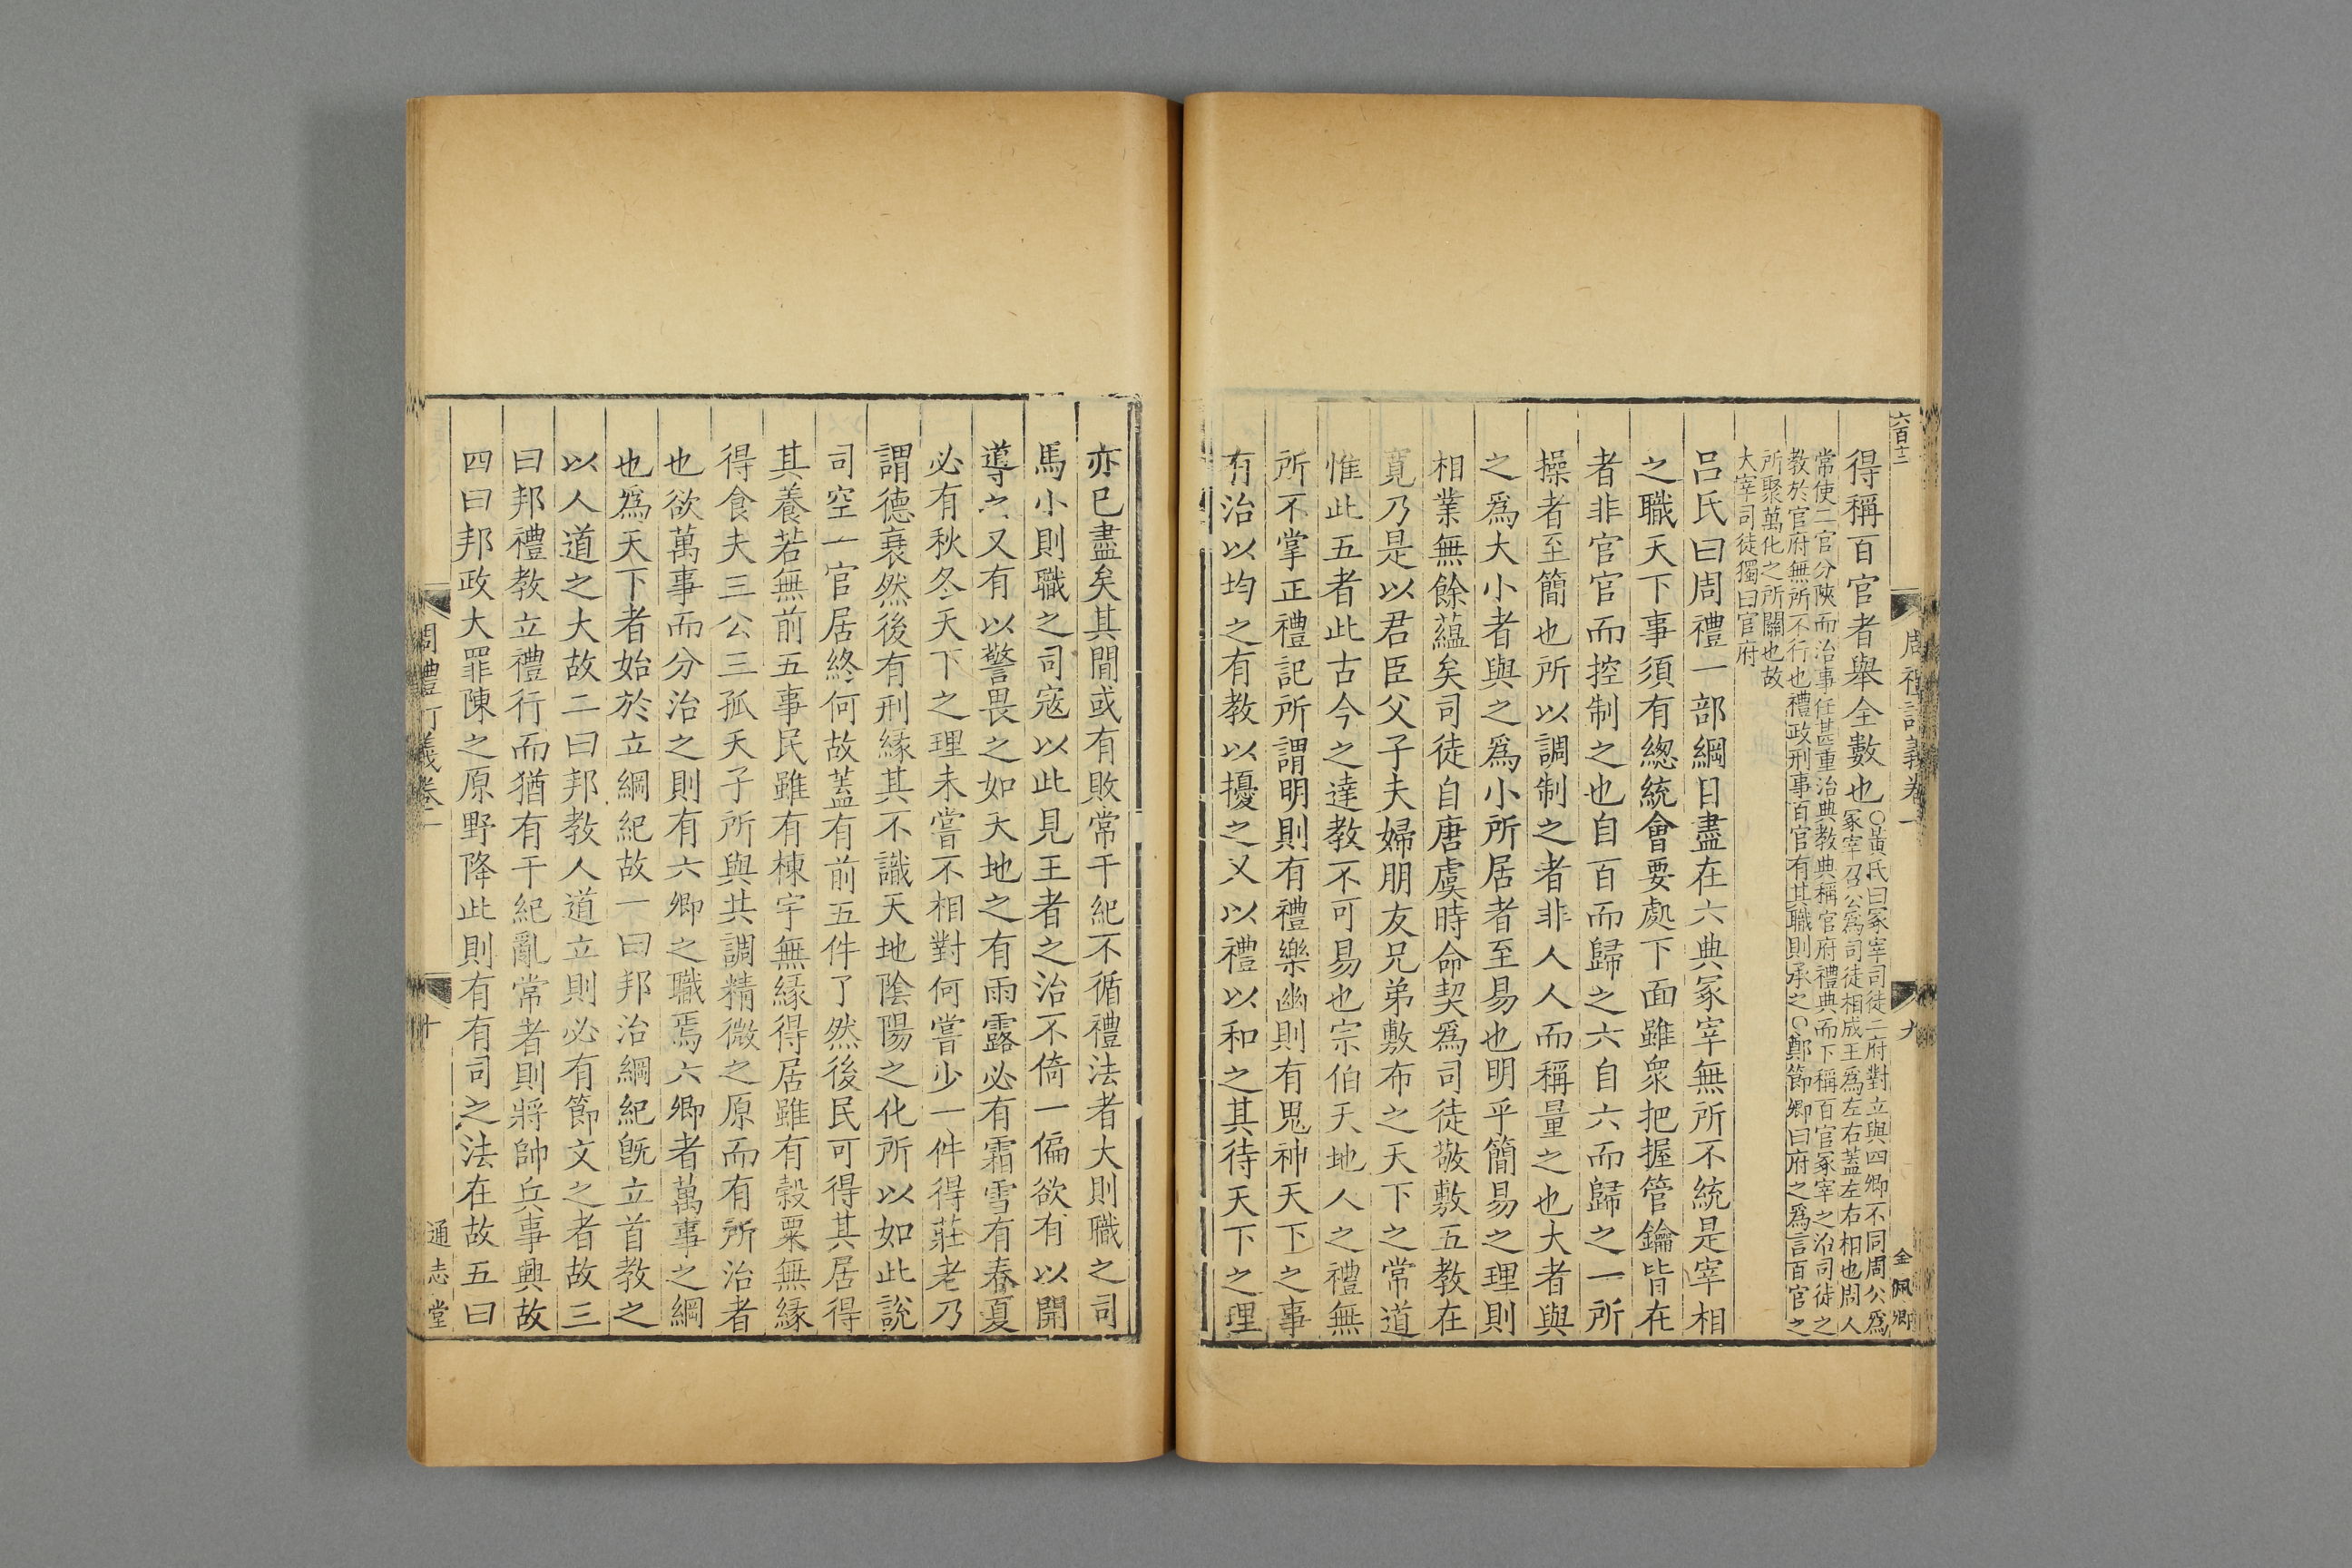 六百十二
周禮訂義卷一
九
金佩卿
得稱百官者舉全數也○黃氏曰冢宰司徒二府對立與四卿不同周公爲
冢宰召公爲司徒相成王爲左右蓋左右相也周人
常使二官分陝而治事任甚重治典教典稱官府禮典而下稱百官冢宰之治司徒之
教於官府無所不行也禮政刑事百官有其職則承之○鄭節卿曰府之爲言百官之
所聚萬化之所關也故
大宰司徒獨曰官府
呂氏曰周禮一部綱目盡在六典冢宰無所不統是宰相
之職天下事須有緫統會要處下面雖衆把握管鑰皆在
者非官官而控制之也自百而歸之六自六而歸之一所
操者至簡也所以調制之者非人人而稱量之也大者與
之爲大小者與之爲小所居者至易也明乎簡易之理則
相業無餘蘊矣司徒自唐虞時命契爲司徒敬敷五教在
寬乃是以君臣父子夫婦朋友兄弟敷布之天下之常道
惟此五者此古今之達教不可易也宗伯天地人之禮無
所不掌正禮記所謂明則有禮樂幽則有鬼神天下之事
有治以均之有教以擾之又以禮以和之其待天下之理
亦已盡矣其間或有敗常干紀不循禮法者大則職之司
馬小則職之司寇以此見王者之治不倚一偏欲有以開
導之又有以警畏之如天地之有雨露必有霜雪有春夏
必有秋冬天下之理未嘗不相對何嘗少一件得莊老乃
謂德衰然後有刑緣其不識天地陰陽之化所以如此說
司空一官居終何故蓋有前五件了然後民可得其居得
其養若無前五事民雖有棟宇無緣得居雖有穀粟無緣
得食夫三公三孤天子所與其調精微之原而有所治者
也欲萬事而分治之則有六卿之職焉六卿者萬事之綱
也爲天下者始於立綱紀故一曰邦治綱紀旣立首教之
以人道之大故二曰邦教人道立則必有節文之者故三
曰邦禮教立禮行而猶有干紀亂常者則將帥兵事興故
四曰邦政大罪陳之原野降此則有有司之法在故五曰
周禮訂義卷一
十
通志堂